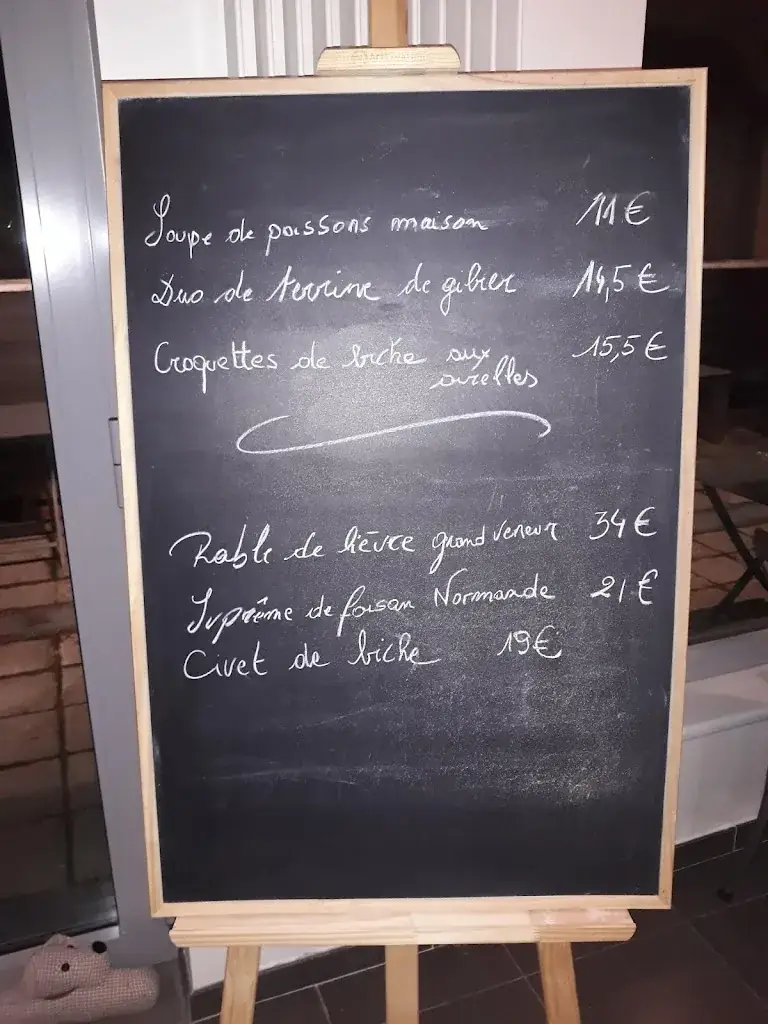 Soupe de poissons maison 11 €
Duo de terrine de gibier 14,5 €
Croquettes de biche aux 15,5 €
airelles
Rable de lièvre grand veneur 34 €
Suprême de faisan Normande 21 €
Civet de biche 19 €